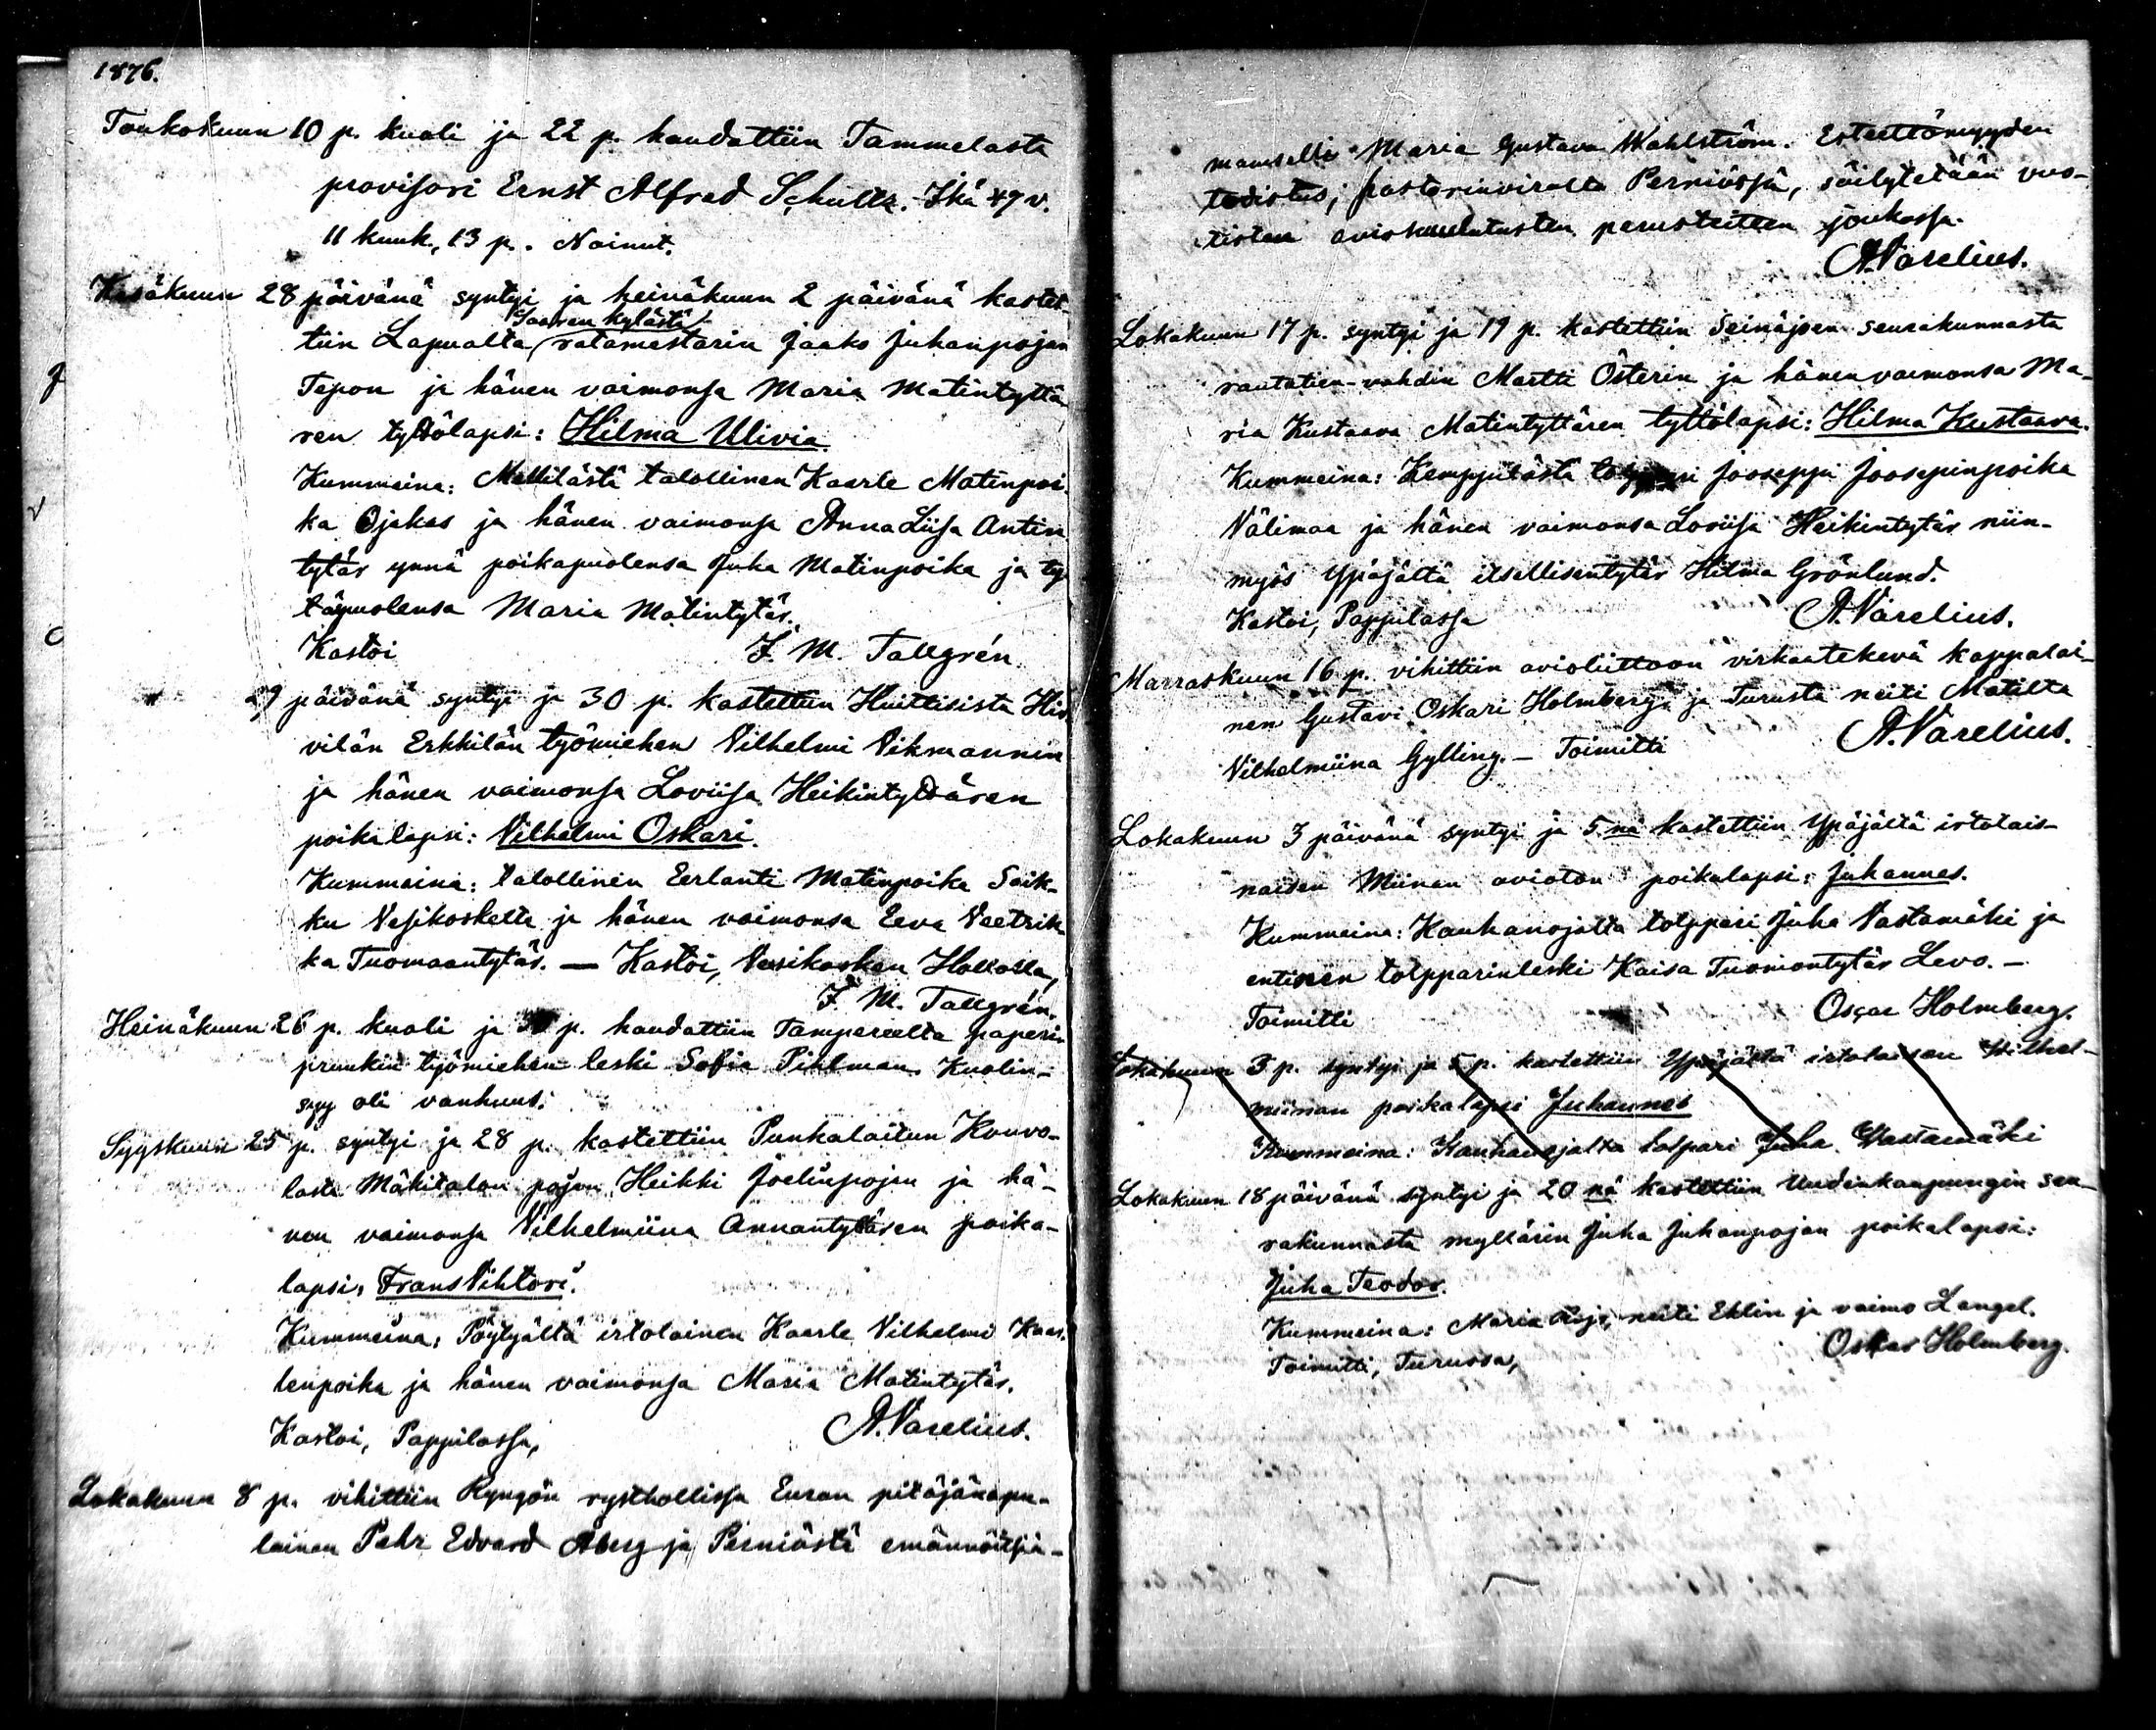 1876.
Toukokuun 10 p. kuoli ja 22 p. haudattiin Tammelasta
provisori Ernst Alfred Schultz. Ikä 47 v.
11 kuuk., 13 p. Nainut.
Kesäkuun 28 päivänä syntyi ja heinäkuun 2 päivänä kastet-
Saaren kylästä
tiin Lapualta ratamestarin Jaako Juhanpojan
Tepon ja hänen vaimonsa Maria Matintyttä-
ren tyttölapsi: Hilma Ulivia.
Kummeina: Mellilästä talollinen Kaarle Matinpoi-
ka Ojakas ja hänen vaimonsa Anna Liisa Antin
tytär ynnä poikapuolensa Juha Matinpoika ja ty-
tärpuolensa Maria Matintytär.
Kastoi F. M. Tallgrén
29 päivänä syntyi ja 30 p. kastettiin Huittisista Hir-
vilän Erkkilän työmiehen Vilhelmi Vikmannin
ja hänen vaimonsa Loviisa Heikintyttären
poikalapsi: Vilhelmi Oskari.
Kummeina: talollinen Eerlanti Matinpoika Seik-
ku Vesikoskelta ja hänen vaimonsa Eeva Veetrik-
ka Tuomaantytär. — Kastoi, Vesikosken Hollolla,
F. M. Tallgrén.
Heinäkuun 26 p. kuoli ja p. haudattiin Tampereelta paperin
pruukin työmiehen leski Sofia Pihlman. Kuolin-
syy oli vanhuus.
Syyskuun 25 p. syntyi ja 28 p. kastettiin Punkalaitun Kouvo-
lasta Mäkitalon pojan Heikki Joelinpojan ja hä-
nen vaimonsa Vilhelmiina Annantyttären poika-
lapsi, Frans Vihtori.
Kummeina: Pöytyältä irtolainen Kaarle Vilhelmi Kaar-
lenpoika ja hänen vaimonsa Maria Matintytär.
Kastoi, Pappilassa, A. Varelius.
Lokakuun 8 p. vihittiin Ryngön rysthollissa Euran pitäjänapu-
lainen Pehr Edvard Åberg ja Perniöstä emännöitsiä-
mamselli Maria Gustava Wahlström. Esteettömyyden
todistus, pastorinvirasta Perniössä, säilytetään vuo-
tisten aviokuulutusten perusteitten joukossa.
A. Varelius.
Lokakuun 17 p. syntyi ja 19 p. kastettiin Seinäjoen seurakunnasta
rautatien-vahdin Martti Österin ja hänen vaimonsa Ma-
ria Kustaava Matintyttären tyttölapsi: Hilma Kustaava.
Kummeina: Kemppilästä Jooseppi Joosepinpoika
Välimaa ja hänen vaimonsa Loviisa Heikintytär niin-
myös Ypäjältä itsellisentytär Hilma Grönlund.
Kastoi, Pappilassa A. Varelius.
Marraskuun 16 p. vihittiin avioliittoon virkaatekevä kappalai-
nen Gustavi Oskari Holmberg ja Turusta neiti Matilta
Vilhelmiina Gylling. — Toimitti A. Varelius.
Lokakuun 3 päivänä syntyi ja 5 nä kastettiin Ypäjältä irtolais-
naisen Miinan avioton poikalapsi: Juhannes.
Kummeina: Kauhanojalta torppari Juha Vastamäki ja
entinen torpparinleski Kaisa Tuomontytär Levo. —
Toimitti Oscar Holmberg.
Lokakuun 3 p. syntyi ja 5 p. kastettiin Ypäjältä irtolaisen Wilhel-
miinan poikalapsi Juhannes
Kummeina: Kauhanojalta torpari Juha Vastamäki
Lokakuun 18 päivänä syntyi ja 20 nä kastettiin Uudenkaupungin seu-
rakunnasta myllärin Juha Juhanpojan poikalapsi:
Juha Teodor.
Kummeina: Maria neiti Eklin ja vaimo Langel.
Toimitti, Turussa, Oskar Holmberg.